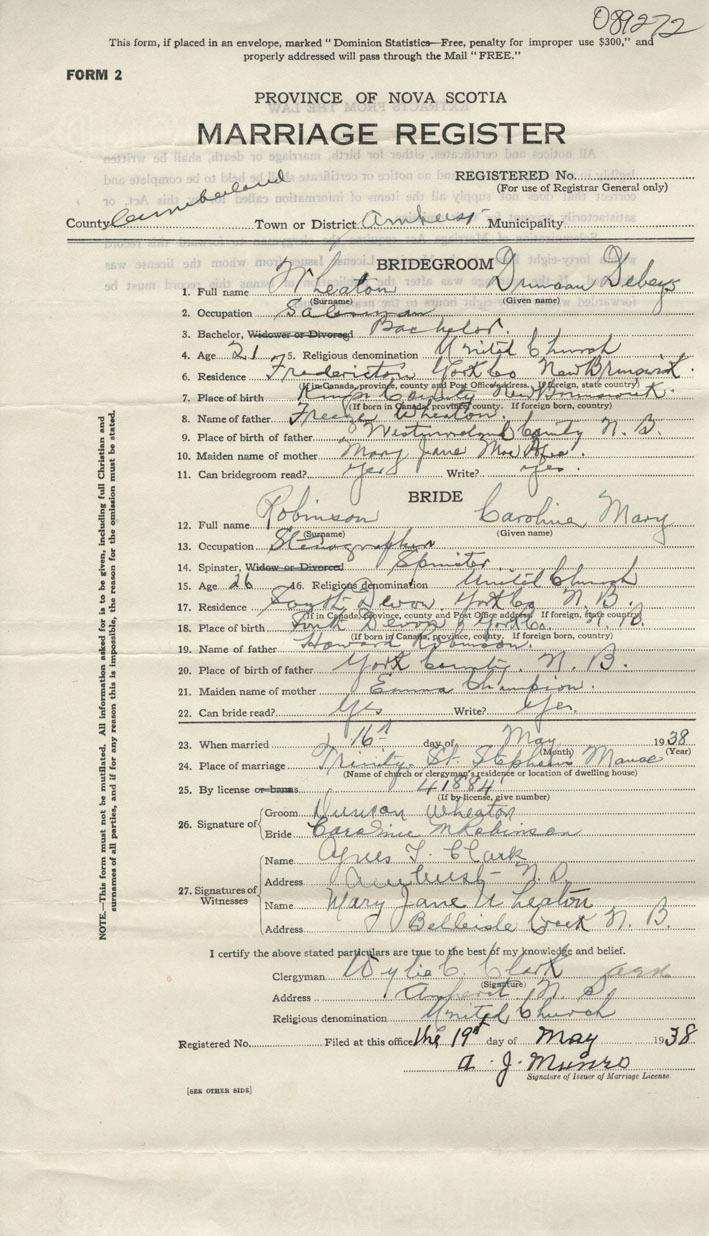 089272
This form, if placed in an envelope, marked "Dominion Statistics—Free, penalty for improper use $300," and
properly addressed will pass through the Mail "FREE."
FORM 2
PROVINCE OF NOVA SCOTIA
MARRIAGE REGISTER
REGISTERED No.
(For use of Registrar General only)
County Cumberland Town or District Amherst Municipality
BRIDEGROOM
1. Full name Wheaton Duncan
(Surname) (Given name)
2. Occupation Salesman
3. Bachelor, Widower or Divorced Bachelor.
4. Age 21 5. Religious denomination United Church
6. Residence Fredericton York Co New Brunswick.
(If in Canada, province, county and Post Office address. If foreign, state country)
7. Place of birth Kings County New Brunswick.
(If born in Canada, province, county. If foreign born, country)
8. Name of father Freeze Wheaton.
9. Place of birth of father Westmorland County N. B.
10. Maiden name of mother Mary Jane
11. Can bridegroom read? Yes Write? Yes.
BRIDE
12. Full name Robinson Caroline Mary
(Surname) (Given name)
13. Occupation Stenographer
14. Spinster, Widow or Divorced Spinster
15. Age 26 16. Religious denomination United Church
17. Residence South Devon York Co. N. B.
(If in Canada, province, county and Post Office address. If foreign, state country)
18. Place of birth Devon York Co. N. B.
(If born in Canada, province, county. If foreign born, country)
19. Name of father Howard Robinson.
20. Place of birth of father York County. N. B.
21. Maiden name of mother Emma Champion.
22. Can bride read? Yes Write? Yes.
23. When married 16th day of May 1938
(Month) (Year)
24. Place of marriage Trinity St. Stephens Manse
(Name of church or clergyman's residence or location of dwelling house)
25. By license or banns 41884
(If by license, give number)
26. Signature of Groom Duncan Wheaton
Bride Caroline M Robinson
27. Signatures of Witnesses
Name Agnes T. Clark
Address Amherst N.S.
Name Mary Jane Wheaton
Address Belleisle Creek N. B.
I certify the above stated particulars are true to the best of my knowledge and belief.
Clergyman Wylie C. Clark
(Signature)
Address Amherst N. S.
Religious denomination United Church
Registered No. Filed at this office the 19th day of May 1938
A. J. Munro
Signature of Issuer of Marriage License.
[SEE OTHER SIDE]
NOTE.—This form must not be mutilated. All information asked for is to be given, including full Christian and
surnames of all parties, and if for any reason this is impossible, the reason for the omission must be stated.